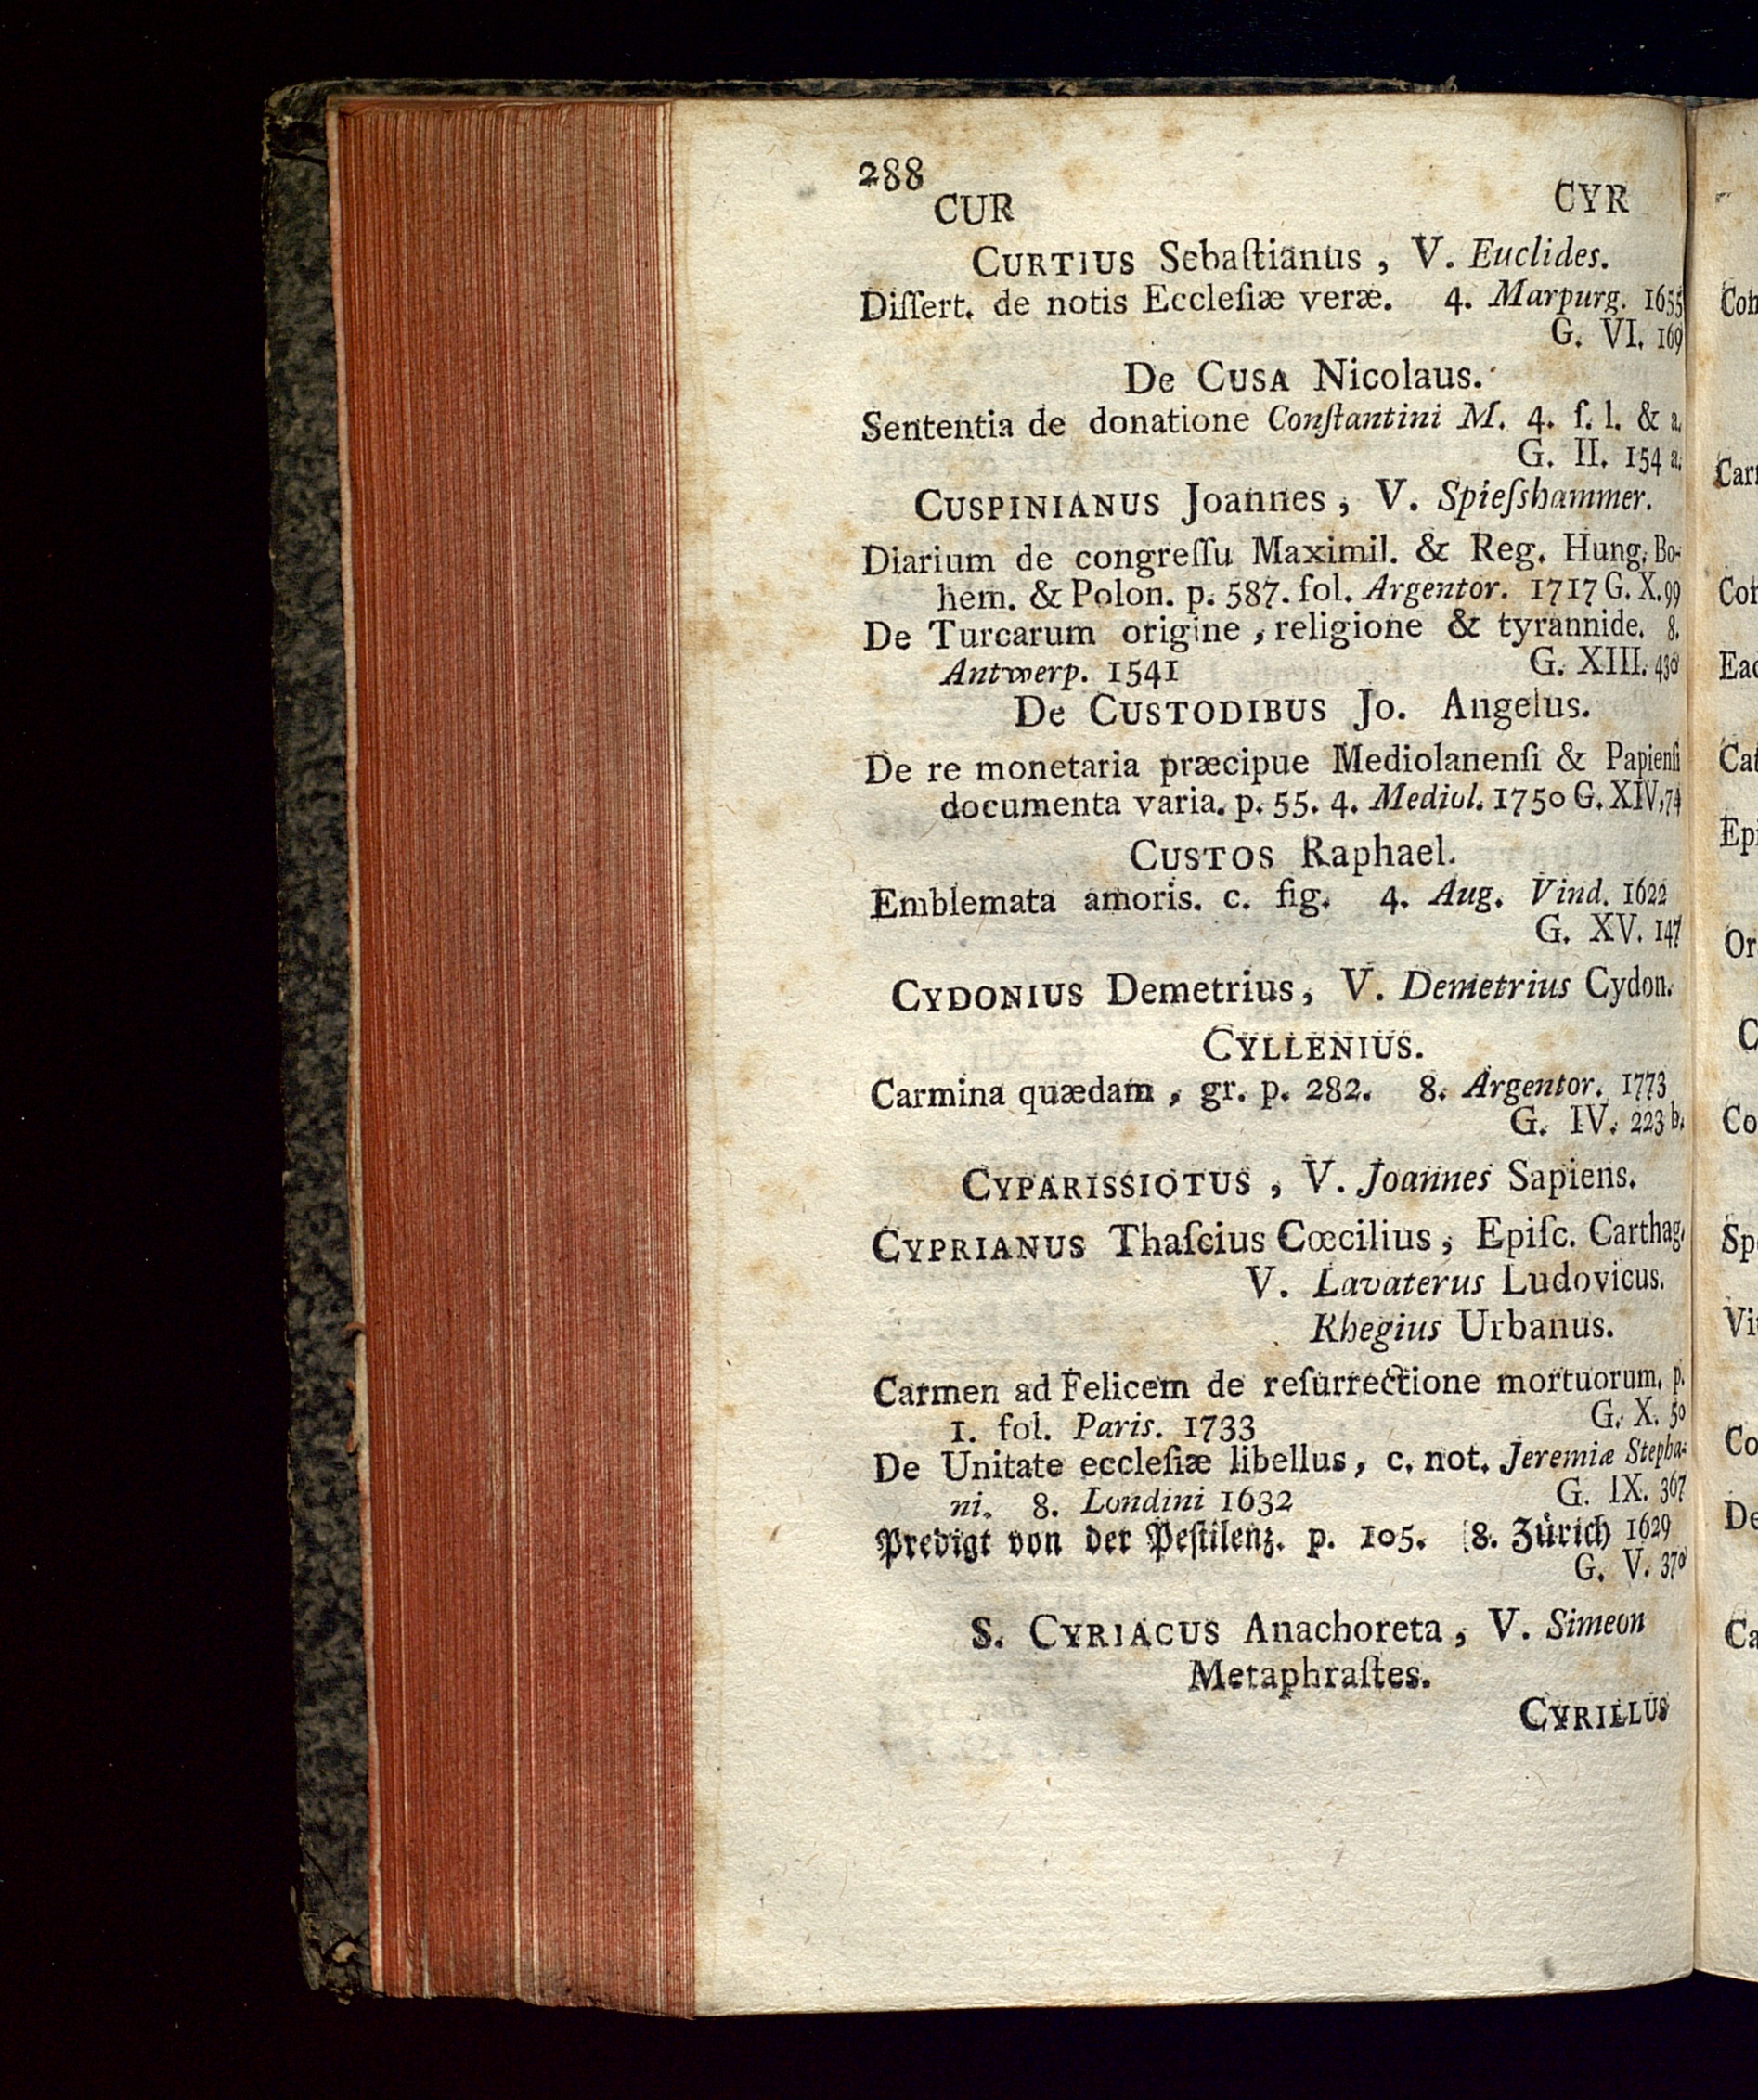 288
CUR CYR
CURTIUS Sebaſtianus, V. Euclides.
Diſſert. de notis Eccleſiæ veræ. 4. Marpurg. 1655
G. VI. 169
De CUSA Nicolaus.
Sententia de donatione Conſtantini M. 4. ſ. l. & a.
G. II. 154 a.
CUSPINIANUS Joannes, V. Spieſshammer.
Diarium de congreſſu Maximil. & Reg. Hung. Bo-
hem. & Polon. p. 587. fol. Argentor. 1717 G. X. 99
De Turcarum origine, religione & tyrannide. 8.
Antwerp. 1541 G. XIII. 430
De CUSTODIBUS Jo. Angelus.
De re monetaria præcipue Mediolanenſi & Papienſi
documenta varia. p. 55. 4. Mediol. 1750 G. XIV. 74
CUSTOS Raphael.
Emblemata amoris. c. fig. 4. Aug. Vind. 1622
G. XV. 147
CYDONIUS Demetrius, V. Demetrius Cydon.
CYLLENIUS.
Carmina quædam, gr. p. 282. 8. Argentor. 1773
G. IV. 223 b.
CYPARISSIOTUS, V. Joannes Sapiens.
CYPRIANUS Thaſcius Cœcilius, Epiſc. Carthag.
V. Lavaterus Ludovicus.
Rhegius Urbanus.
Carmen ad Felicem de reſurrectione mortuorum. p.
1. fol. Paris. 1733 G. X. 50
De Unitate eccleſiæ libellus, c. not. Jeremiæ Stepha-
ni. 8. Londini 1632 G. IX. 367
Predigt von der Peſtilenz. p. 105. 8. Zürich 1629
G. V. 370
S. CYRIACUS Anachoreta, V. Simeon
Metaphraſtes.
CYRILLUS